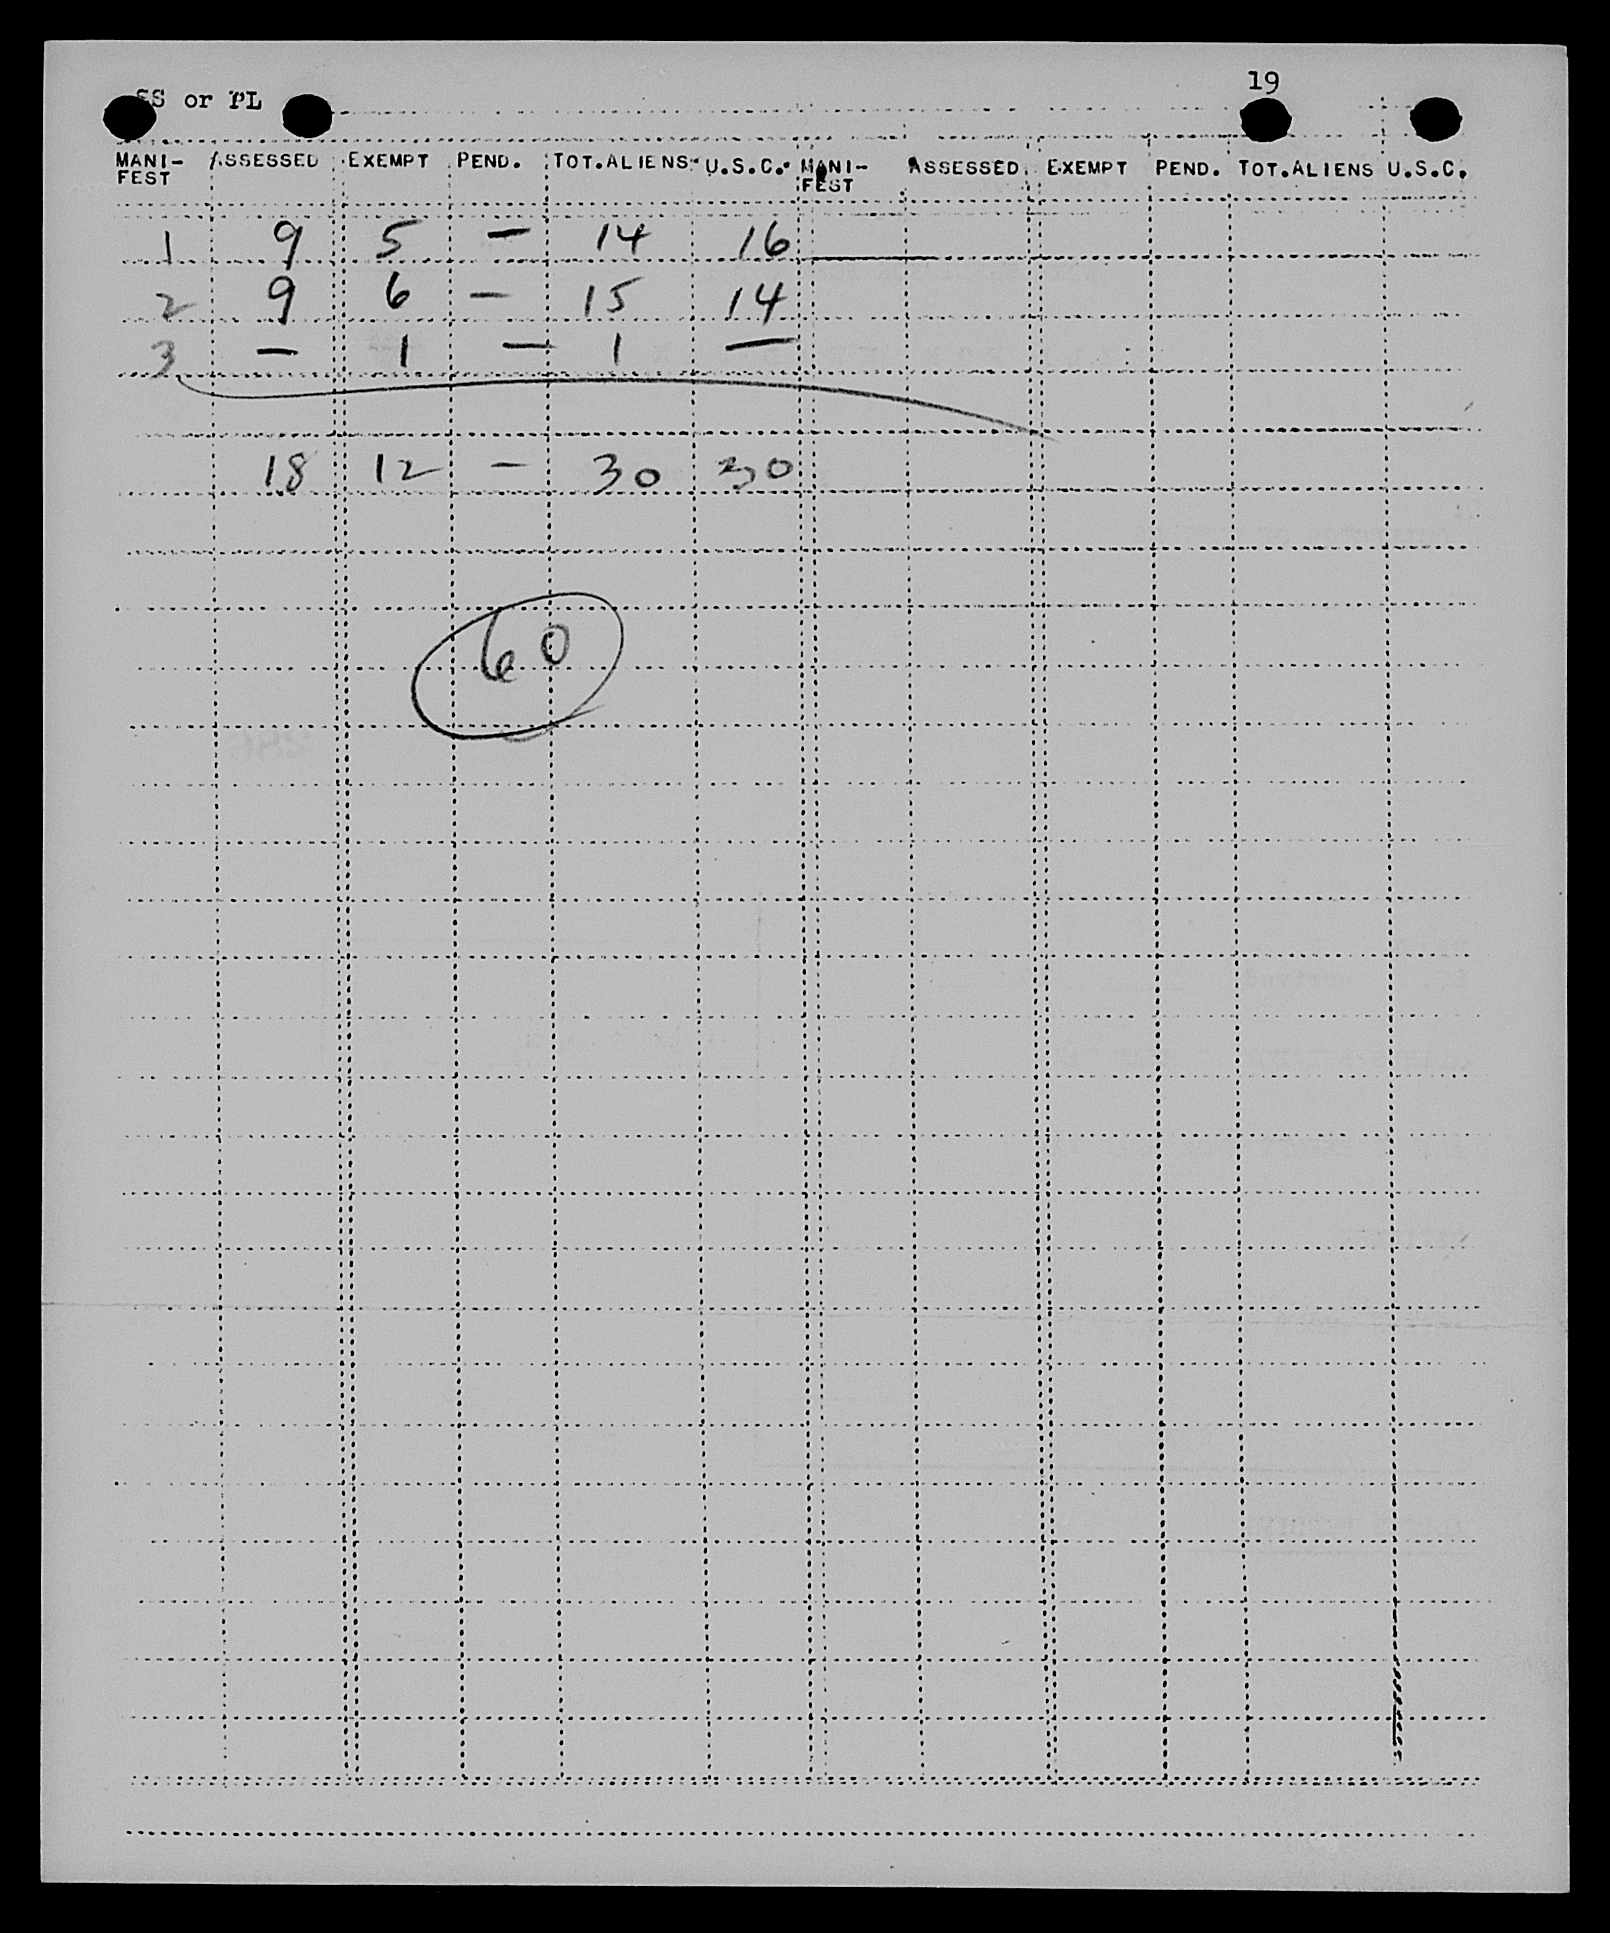 SS or PL 19
MANI- ASSESSED EXEMPT PEND. TOT.ALIENS U.S.C. MANI- ASSESSED EXEMPT PEND. TOT.ALIENS U.S.C.
FEST FEST
1 9 5 — 14 16
2 9 6 — 15 14
3 — 1 — 1 —
18 12 — 30 30
60